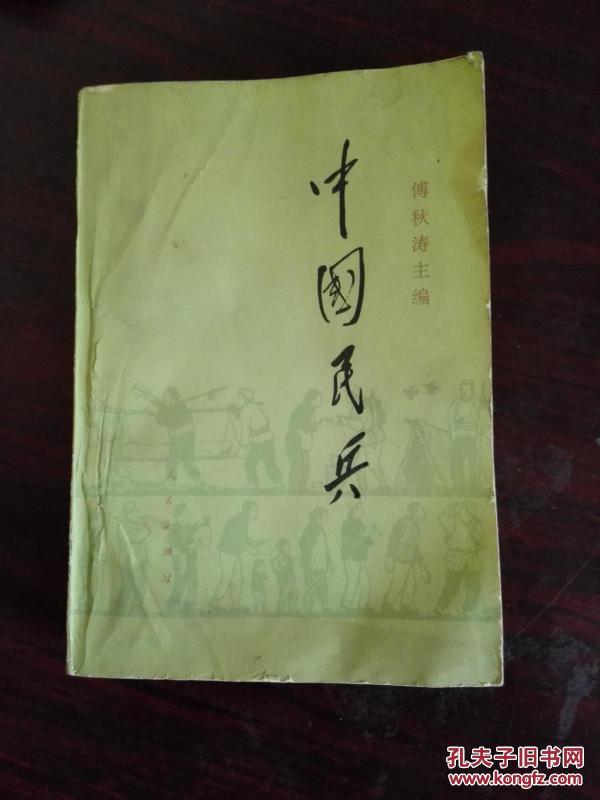 傅秋涛主编
中國民兵
人民出版社
孔夫子旧书网
www.kongfz.com